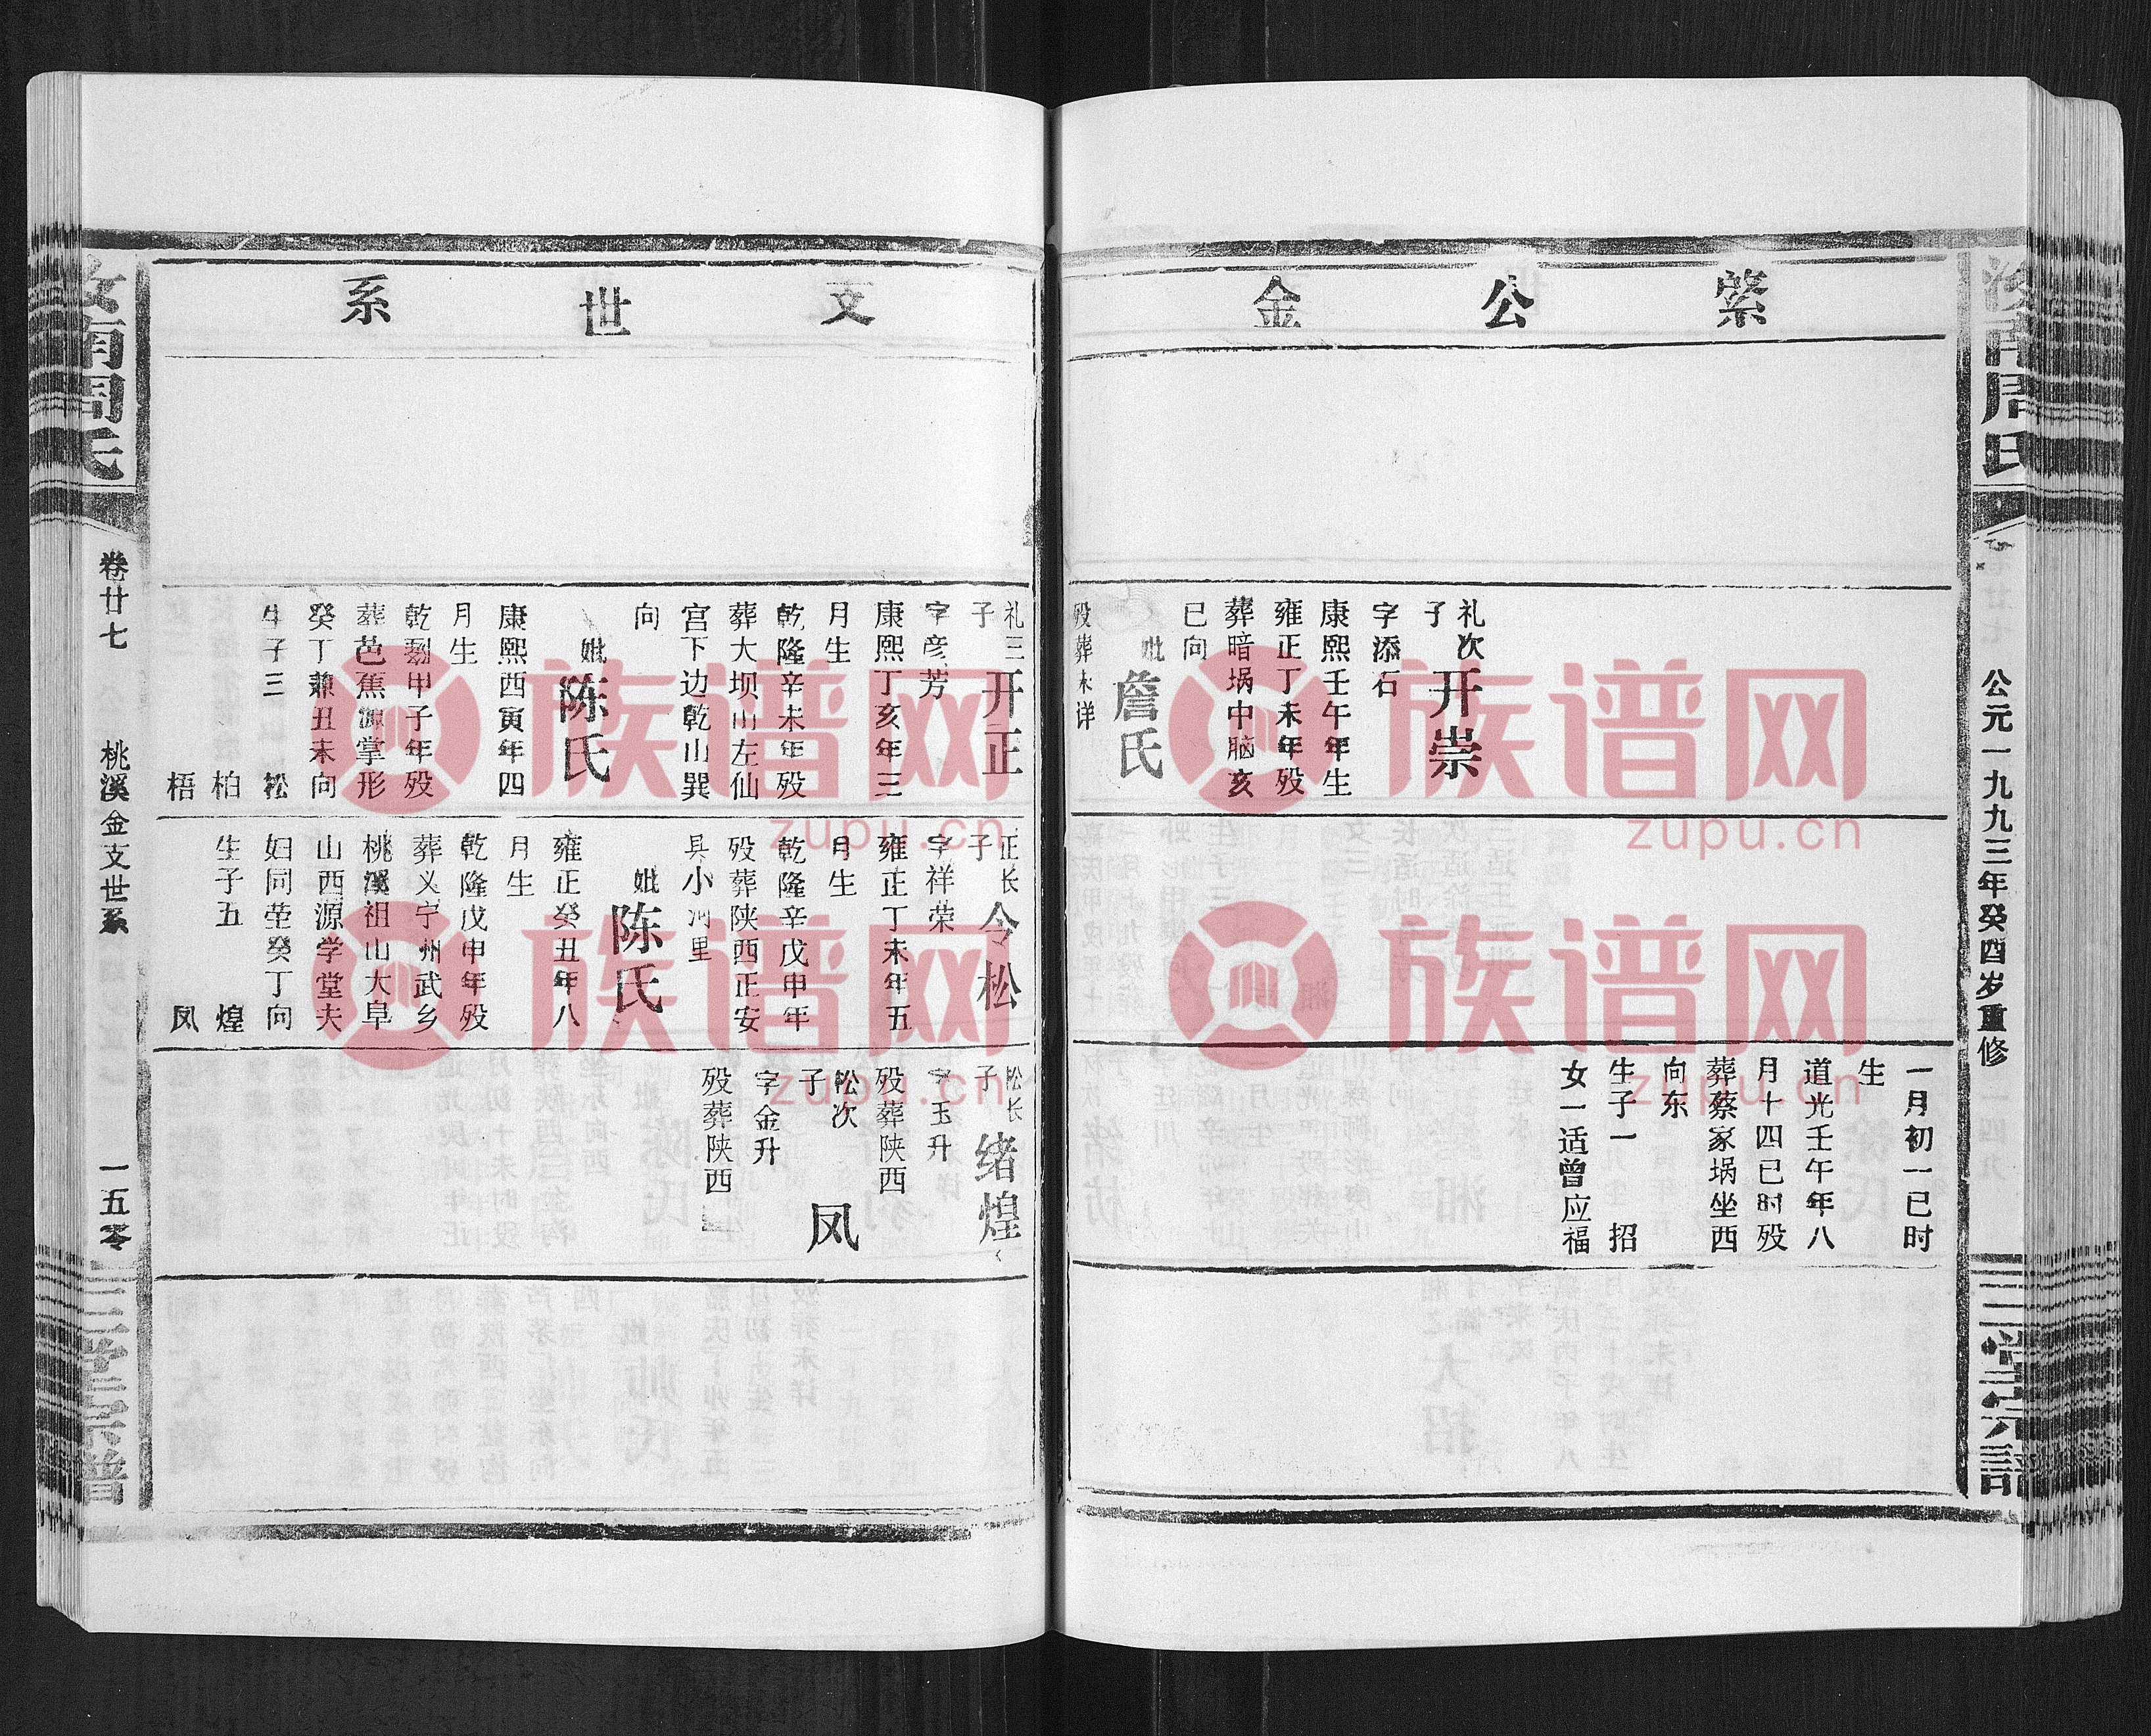 綮公金
汝南周氏
公元一九九三年癸酉岁重修
三堂宗譜
礼次
子
开崇
字添石
康熙壬午年生
雍正丁未年殁
葬暗埚中脑亥
巳向
妣
詹氏
殁葬未详
一月初一已时
生
道光壬午年八
月十四已时殁
葬蔡家埚坐西
向东
生子一 招
女一适曾应福
文世系
礼三
子
开正
字彦芳
康熙丁亥年三
月生
乾隆辛未年殁
葬大坝山左仙
宫下边乾山巽
向
妣
陈氏
康熙西寅年四
月生
乾刭甲子年殁
葬芭蕉源掌形
癸丁兼丑未向
生子三 松
柏
梧
正长
子
令松
字祥荣
雍正丁未年五
月生
乾隆辛戊申年
殁葬陕西正安
具小河里
妣
陈氏
雍正癸丑年八
月生
乾隆戊申年殁
葬义宁州武乡
桃溪祖山大阜
山西源学堂夫
妇同茔癸丁向
生子五 煌
凤
松长
子
绪煌
字玉升
殁葬陕西
松次
子
凤
字金升
殁葬陕西
汝南周氏
卷廿七
桃溪金支世系
一五零
三堂宗譜
族谱网
zupu.cn
族谱网
zupu.cn
族谱网
zupu.cn
族谱网
zupu.cn